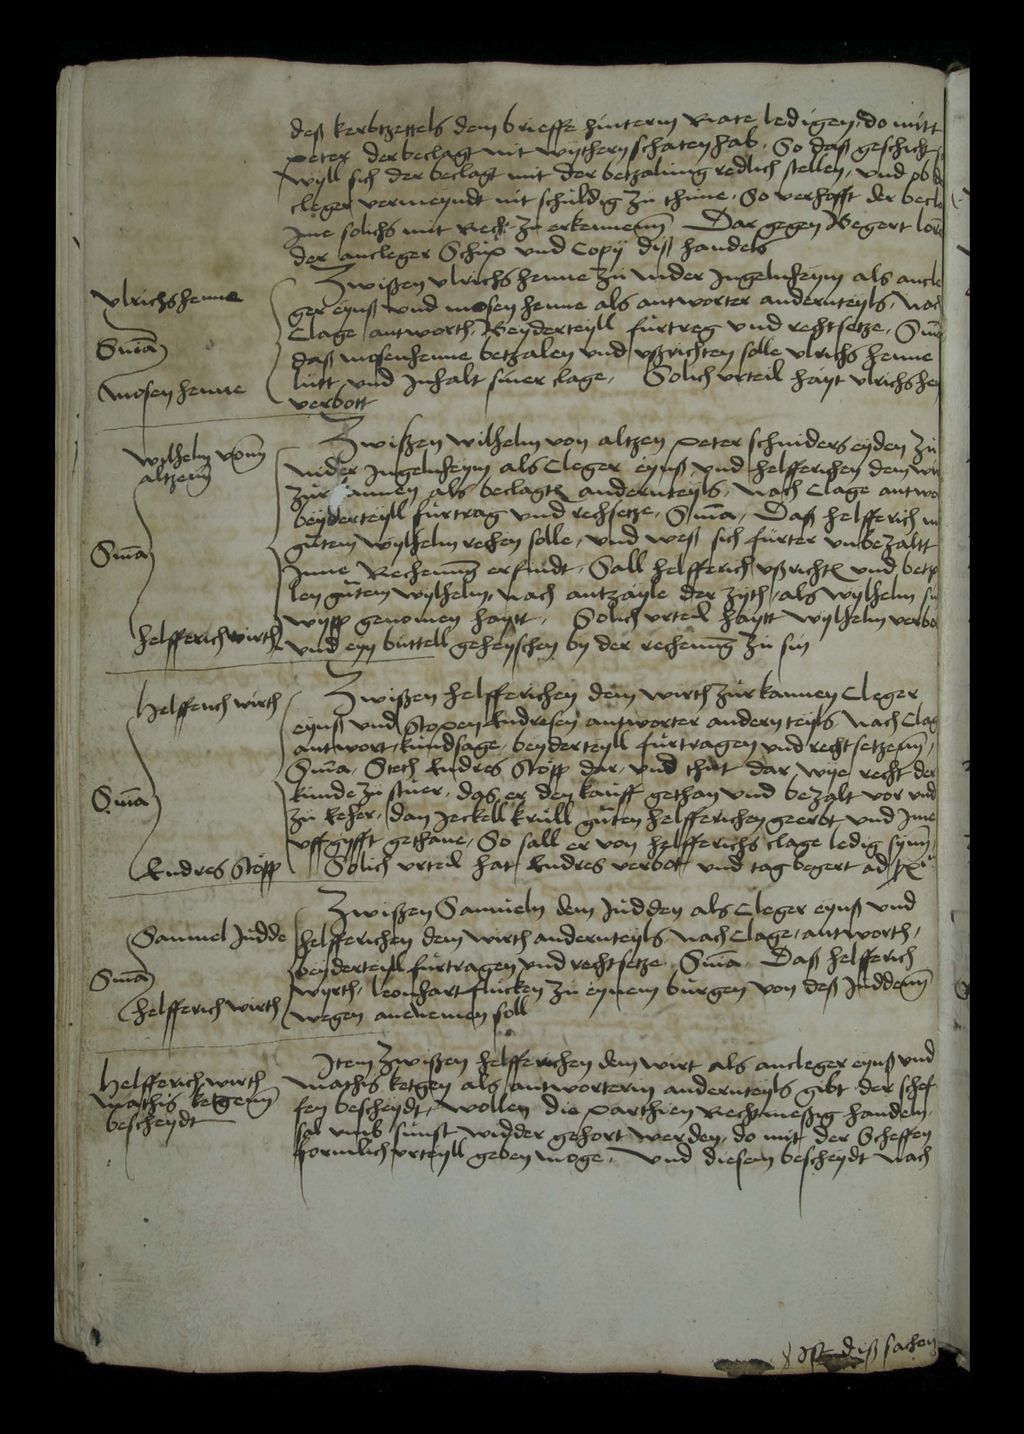 deß kerbtzettels dem brieffe hinterm Rate ledigen, do mitt
Peter der beclagt nit wythern schaten hab. So daß geschicht,
wyll sich der beclagt mit der betzalung redlich stellen, und ob d
cleger vermeyndt nit schuldig zu thune, So verhofft der becla
Ime solichs mit Recht zu erkennenn Dar gegen Begert
der ancleger Schup und Copij diß handels
Ulrichs henne
Sma
Mosen henne
Zwißen ulrichs henne zu nider Ingelnheym als ancle
ger eynß und mosen henne als antworter andernteyls, Nach
Clage antworth, Beyderteyll furtreg und rechtsetze, Sma
daß mosenhenne betzalen und ußrichten solle ulrichs henne
lutt und Inhalt siner clage, Solich urteil hayt ulrichs hen
verbott
Wylhelm vonn
altzenn
Sma
helfferich wirth
Zwißen wilhelm von altzen Peter schniders eyden zu
nider Ingelnheym als Cleger eynß und helfferichen dem wir
zur kannen als beclagten andernteyls, Nach Clage antwo
beyderteyll furtrag und rechsetze, Sma, Daß helfferich
gutem wylhelm rechen solle, und weß sich furter unbezalt
Inne Rechenung erfindt, Sall helfferich ußrichten und betza
len gutem wylhelm, nach antzayle der zyth, als wylhelm
wypp genomen haytt, Solich urteil haytt wylhelm verbo
und eyn buttell geheyschen by der rechenung zu sin
Helfferich wirth
Sma
Endres Stopp
Zwißen helfferichen dem wirth zur kannen Cleger
eynß und Stopen Endresen antworter andern teyls, Nach Clag
antwort, kundsage, beyderteyll furtragen und rechtsetzenn,
Sma, Stelt Endres Stopp dar, und thut dar wije recht der
kunde zu stuer, das er den kauff gethan und bezalt vor und
zu Eeher, dan Jeckell krull guten helfferichen geerbt und Ime
uffgyfft gethane, So sall er von helfferichs clage ledig synn
Solich urteil hat Endres verbott und tag begert ad
Samuel Judde
Sma
helfferich wirth
Zwißen Samueln dem Judden als Cleger eynß und
helfferichen dem wirth anderntteyls, nach Clage, antworth,
beyderteyll furtragen und rechtsetze, Sma, Daß helfferich
wyrth, leonhart flucken zu eynem burgen von deß Juddenn
wegen anenemen soll
Helfferich wirth
Mathis ketgenn
bescheydt
Item Zwißen helfferichen dem wirt als ancleger eynß und
Mathis ketgen als antworterin anderntteyls gibt der schef
fen bescheydt, wollen die Parthien Rechtmeßig handeln,
sal umb sunst widder gehort werden, do mit der Scheffen
formlich urteyll geben moge, Und diesem bescheydt nach
ist diß sachen